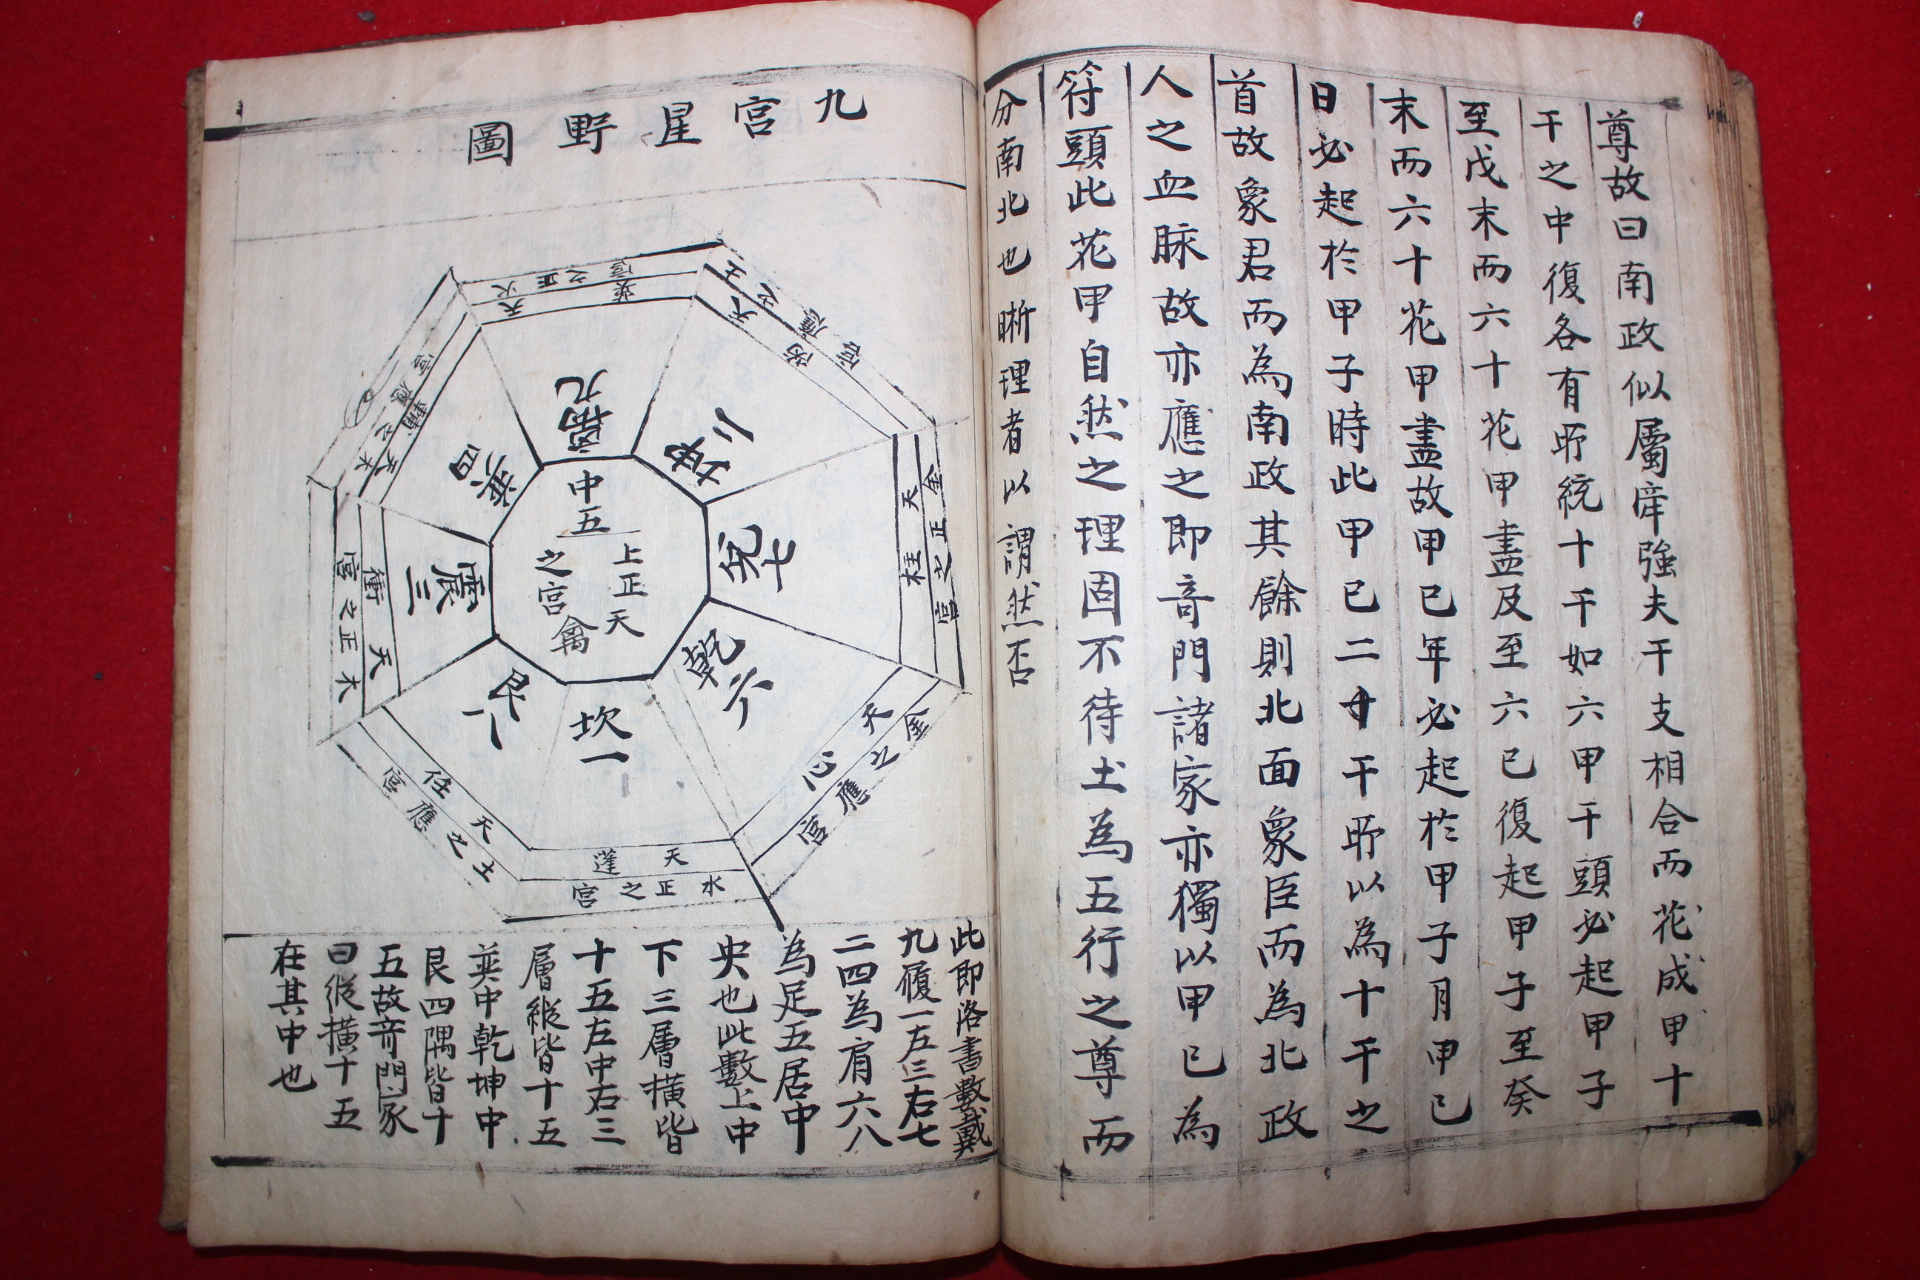 尊故曰南政似屬牽強夫干支相合而花成甲十
干之中復各有所統十干如六甲干頭必起甲子
至戊末而六十花甲盡及至六已復起甲子至癸
末而六十花甲盡故甲已年必起於甲子月甲已
日必起於甲子時此甲已二干所以為十干之
首故象君而為南政其餘則北面象臣而為北政
人之血脉故亦應之即竒門諸家亦獨以甲已為
符頭此花甲自然之理固不待土為五行之尊而
分南北也晰理者以謂然否
九宮星野圖
天英
火正之宮
天芮
土之應宮
天柱
金正之宮
天心
金之應宮
天蓬
水正之宮
天任
土之應宮
天衝
木正之宮
天輔
木之應宮
離九
坤二
兌七
乾六
坎一
艮八
震三
巽四
中五
上正天
禽之宮
此即洛書數戴
九履一左三右七
二四為肩六八
為足五居中
央也此數上中
下三層橫皆
十五左中右三
層縱皆十五
巽中乾坤中
艮四隅皆十
五故竒門家
曰縱橫十五
在其中也